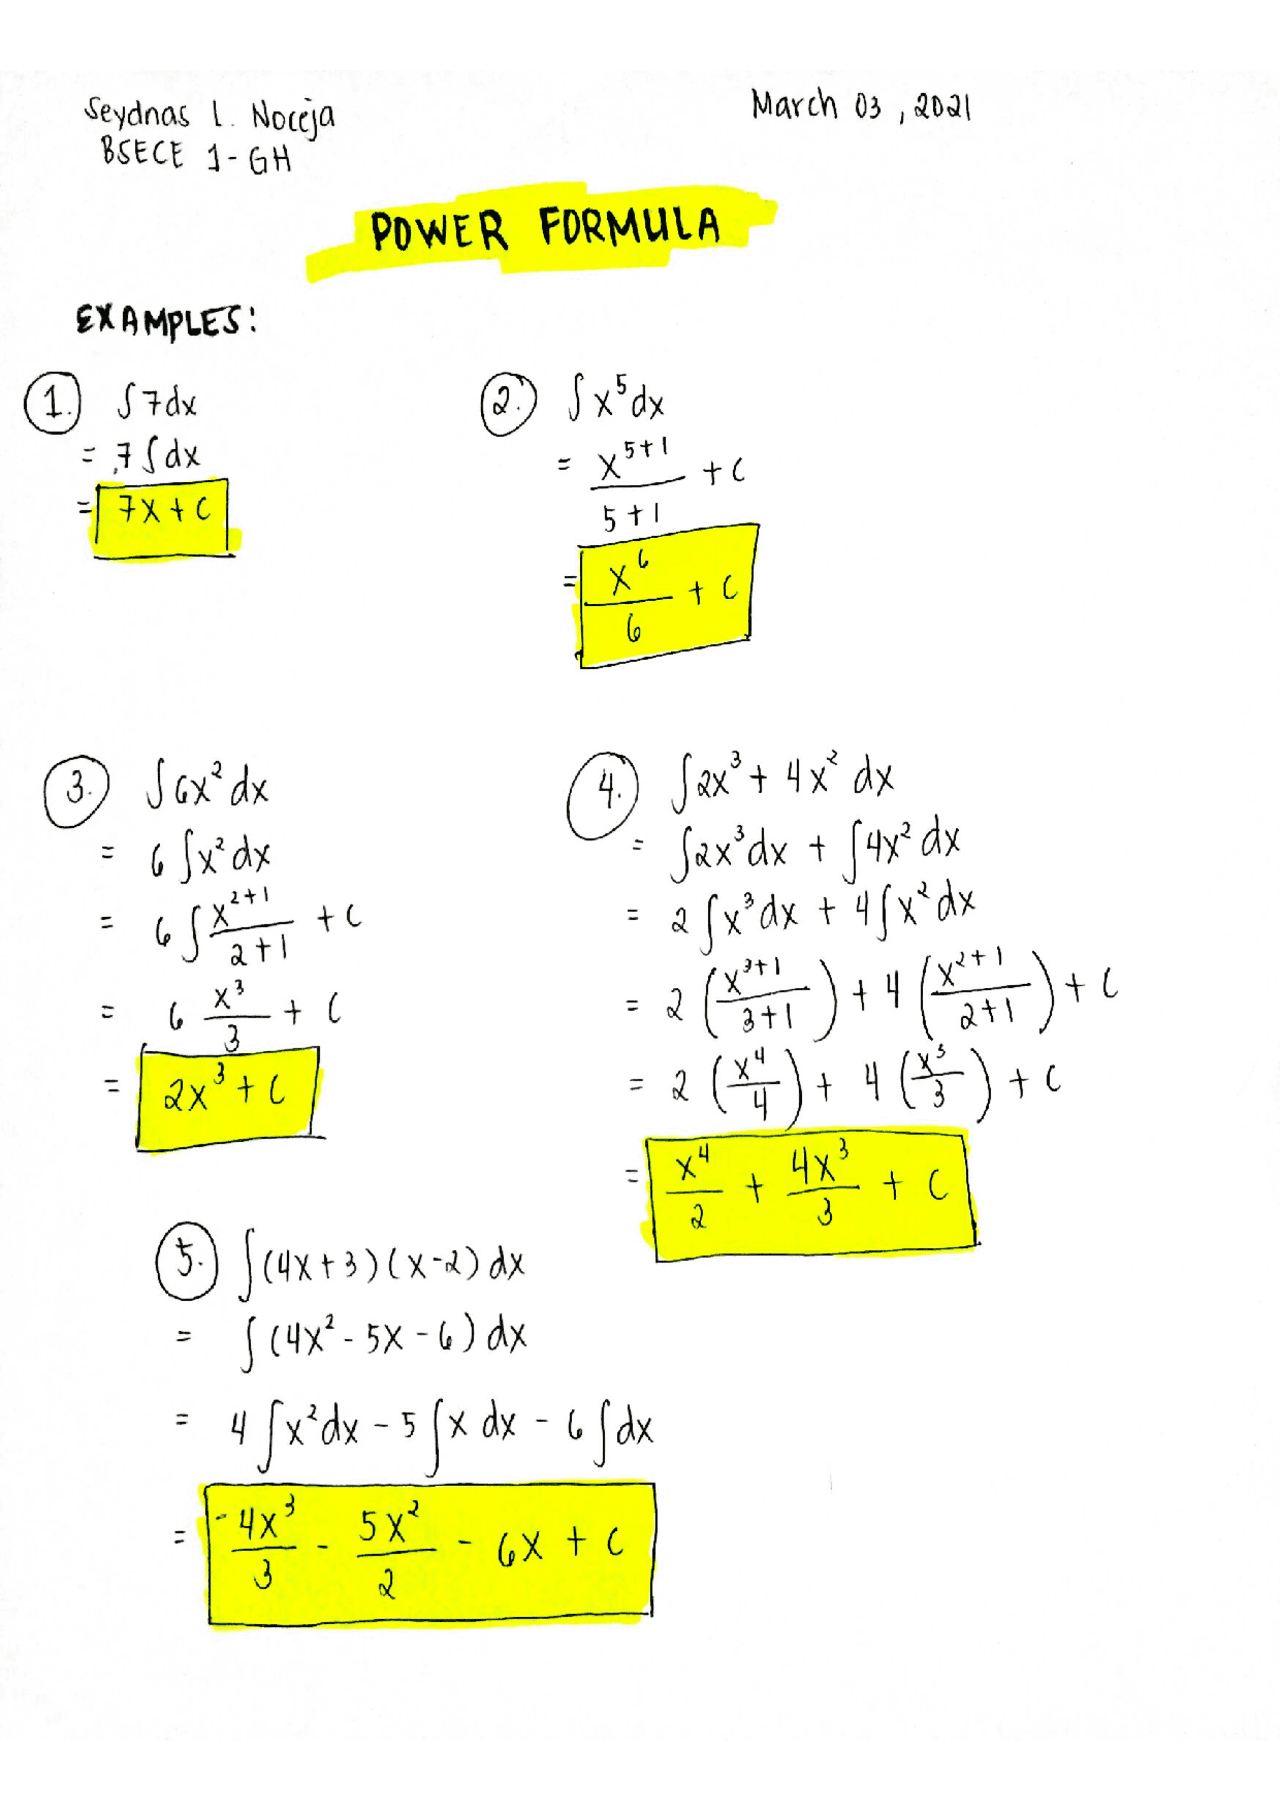 Seydnas L. Noceja
BSECE 1-GH
March 03, 2021
POWER FORMULA
EXAMPLES:
1. ∫7dx
= 7∫dx
= 7x + C
2. ∫x⁵dx
= x⁵⁺¹/5+1 + C
= x⁶/6 + C
3. ∫6x² dx
= 6∫x² dx
= 6∫x²⁺¹/2+1 + C
= 6 x³/3 + C
= 2x³ + C
4. ∫2x³ + 4x² dx
= ∫2x³dx + ∫4x² dx
= 2∫x³dx + 4∫x²dx
= 2(x³⁺¹/3+1) + 4(x²⁺¹/2+1) + C
= 2(x⁴/4) + 4(x³/3) + C
= x⁴/2 + 4x³/3 + C
5. ∫(4x+3)(x-2)dx
= ∫(4x² - 5x - 6)dx
= 4∫x²dx - 5∫x dx - 6∫dx
= -4x³/3 - 5x²/2 - 6x + C